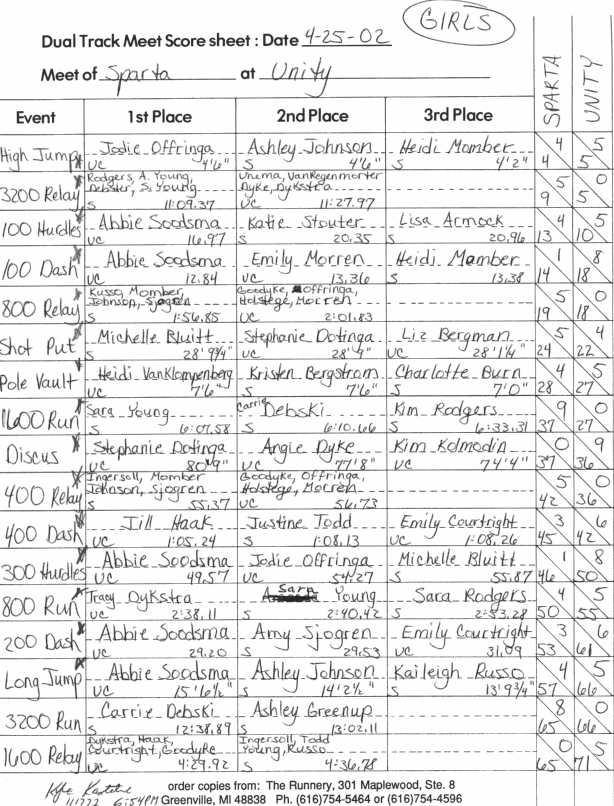 GIRLS
Dual Track Meet Score sheet : Date 4-25-02
Meet of Sparta at Unity
Event 1st Place 2nd Place 3rd Place SPARTA UNITY
High Jump Jodie Offringa Ashley Johnson Heidi Momber 4 5
UC 4'6" S 4'6" S 4'2" 4 5
3200 Relay Rodgers, A. Young, Unema, VanRegenmorter 5 0
Debster, S. Young Dyke, Dykstra
S 11:09.37 UC 11:27.97 9 5
100 Hurdles Abbie Soodsma Katie Stouter Lisa Armock 4 5
UC 16.97 S 20.35 S 20.96 13 10
100 Dash Abbie Soodsma Emily Morren Heidi Momber 1 8
UC 12.84 UC 13.36 S 13.38 14 18
800 Relay Russo, Momber, Goodyke, Offringa, 5 0
Johnson, Sjogren Holstege, Morren
S 1:56.85 UC 2:01.83 19 18
Shot Put Michelle Bluitt Stephanie Dotinga Liz Bergman 5 4
S 28' 9¾" UC 28' 9" UC 28' 1¼" 24 22
Pole Vault Heidi VanKlompenberg Kristen Bergstrom Charlotte Burn 4 5
UC 7'6" S 7'6" S 7'0" 28 27
1600 Run Sara Young Carrie Debski Kim Rodgers 9 0
S 6:07.58 S 6:10.66 S 6:33.31 37 27
Discus Stephanie Dotinga Angie Dyke Kim Kolmodin 0 9
UC 80'9" UC 77'8" UC 74'4" 37 36
400 Relay Ingersoll, Momber Goodyke, Offringa, 5 0
Johnson, Sjogren Holstege, Morren
S 55.37 UC 56.73 42 36
400 Dash Jill Haak Justine Todd Emily Courtright 3 6
UC 1:05.24 S 1:08.13 UC 1:08.26 45 42
300 Hurdles Abbie Soodsma Jodie Offringa Michelle Bluitt 1 8
UC 49.57 UC 54.27 S 55.87 46 50
800 Run Tracy Dykstra Sara Young Sara Rodgers 4 5
UC 2:38.11 S 2:40.42 S 2:53.28 50 55
200 Dash Abbie Soodsma Amy Sjogren Emily Courtright 3 6
UC 29.20 S 29.53 UC 31.09 53 61
Long Jump Abbie Soodsma Ashley Johnson Kaileigh Russo 4 5
UC 15' 6½" S 14' 2½" S 13' 9¾" 57 66
3200 Run Carrie Debski Ashley Greenup 8 0
S 12:38.89 S 13:02.11 65 66
1600 Relay Dykstra, Haak, Ingersoll, Todd 0 5
Courtright, Goodyke Young, Russo
UC 4:29.92 S 4:36.78 65 71
order copies from: The Runnery, 301 Maplewood, Ste. 8
6:54PM Greenville, MI 48838 Ph. (616)754-5464 or (616)754-4596